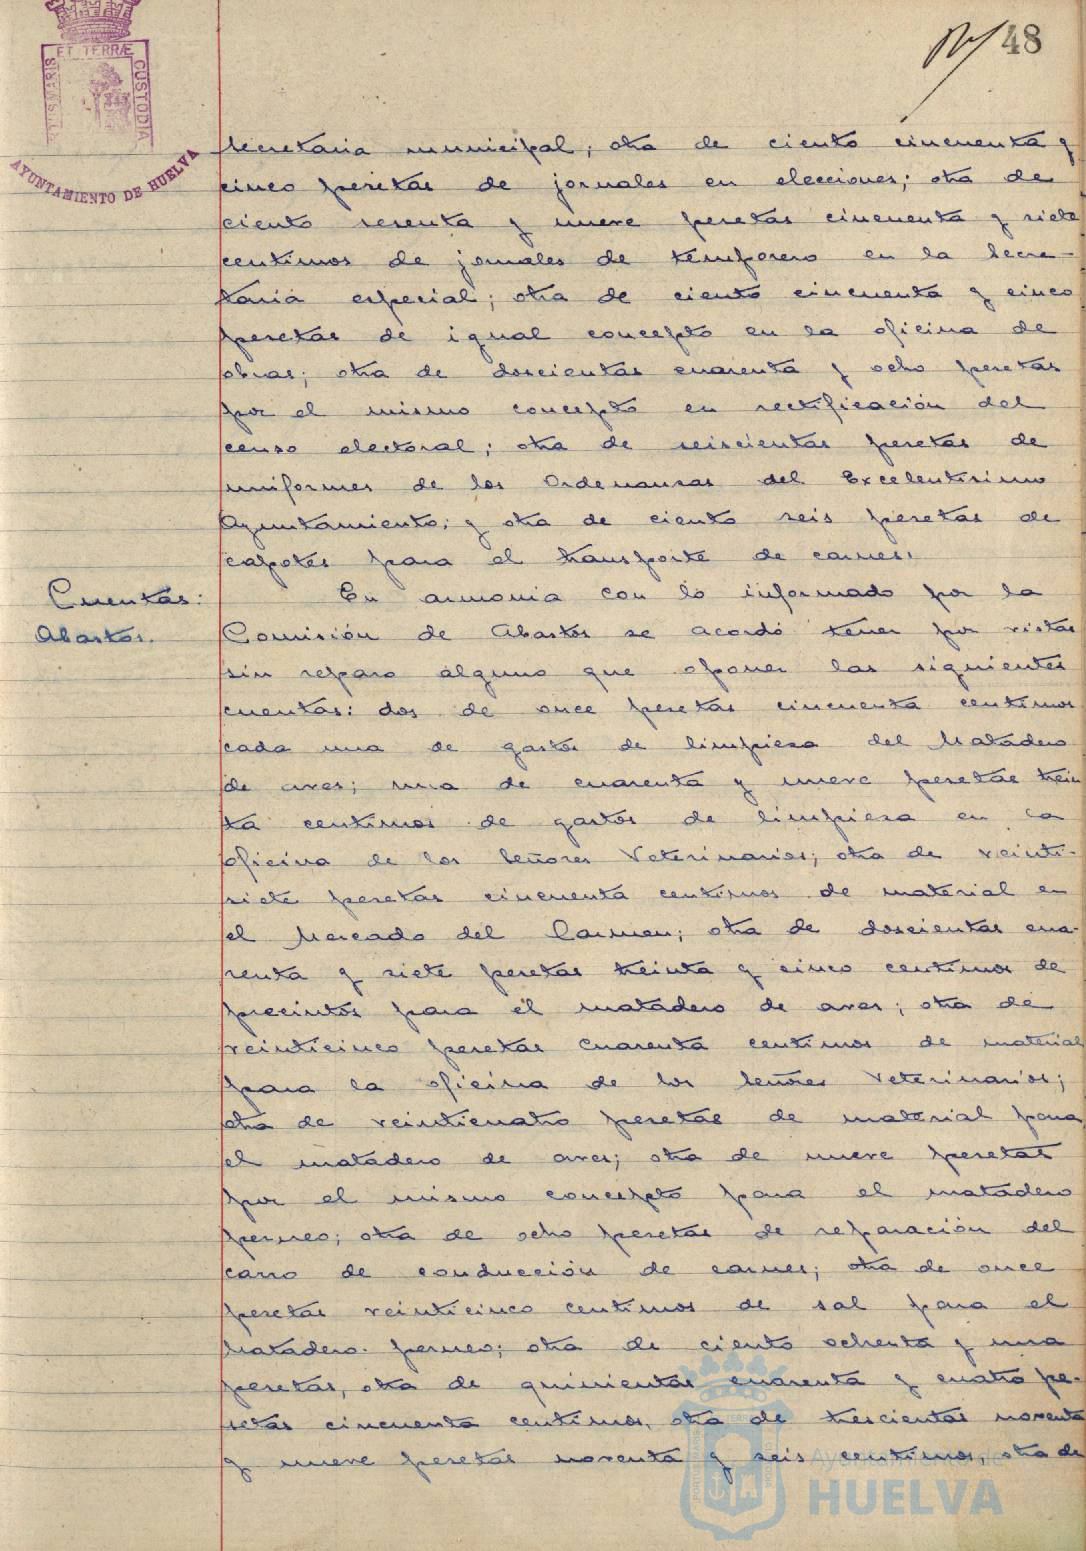 48
ET TERRÆ
CUSTODIA
MARIS
AYUNTAMIENTO DE HUELVA
Secretaria municipal; otra de ciento cincuenta y
cinco pesetas de jornales en elecciones; otra de
ciento sesenta y nueve pesetas cincuenta y siete
centimos de jornales de temporero en la Secre-
taria especial; otra de ciento cincuenta y cinco
pesetas de igual concepto en la oficina de
obras; otra de doscientas cuarenta y ocho pesetas
por el mismo concepto en rectificación del
censo electoral; otra de seiscientas pesetas de
uniformes de los Ordenanzas del Excelentisimo
Ayuntamiento; y otra de ciento seis pesetas de
capotes para el transporte de carnes.
Cuentas:
Abastos.
En armonia con lo informado por la
Comisión de Abastos se acordó tener por vistas
sin reparo alguno que oponer las siguientes
cuentas: dos de once pesetas cincuenta centimos
cada una de gastos de limpieza del Matadero
de aves; una de cuarenta y nueve pesetas trein
ta centimos de gastos de limpieza en la
oficina de los Señores Veterinarios; otra de veinti-
siete pesetas cincuenta centimos de material en
el Mercado del Carmen; otra de doscientas cua-
renta y siete pesetas treinta y cinco centimos de
precintos para el matadero de aves; otra de
veinticinco pesetas cuarenta centimos de material
para la oficina de los Señores Veterinarios;
otra de veinticuatro pesetas de material para
el matadero de aves; otra de nueve pesetas
por el mismo concepto para el matadero
perneo; otra de ocho pesetas de reparación del
carro de conducción de carnes; otra de once
pesetas veinticinco centimos de sal para el
Matadero perneo; otra de ciento ochenta y una
pesetas, otra de quinientas cuarenta y cuatro pe-
setas cincuenta centimos, otra de trescientas noventa
y nueve pesetas noventa y seis centimos, otra de
Ayuntamiento de
HUELVA